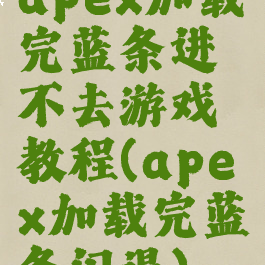 apex加载
完蓝条进
不去游戏
教程(ape
x加载完蓝
条闪退)